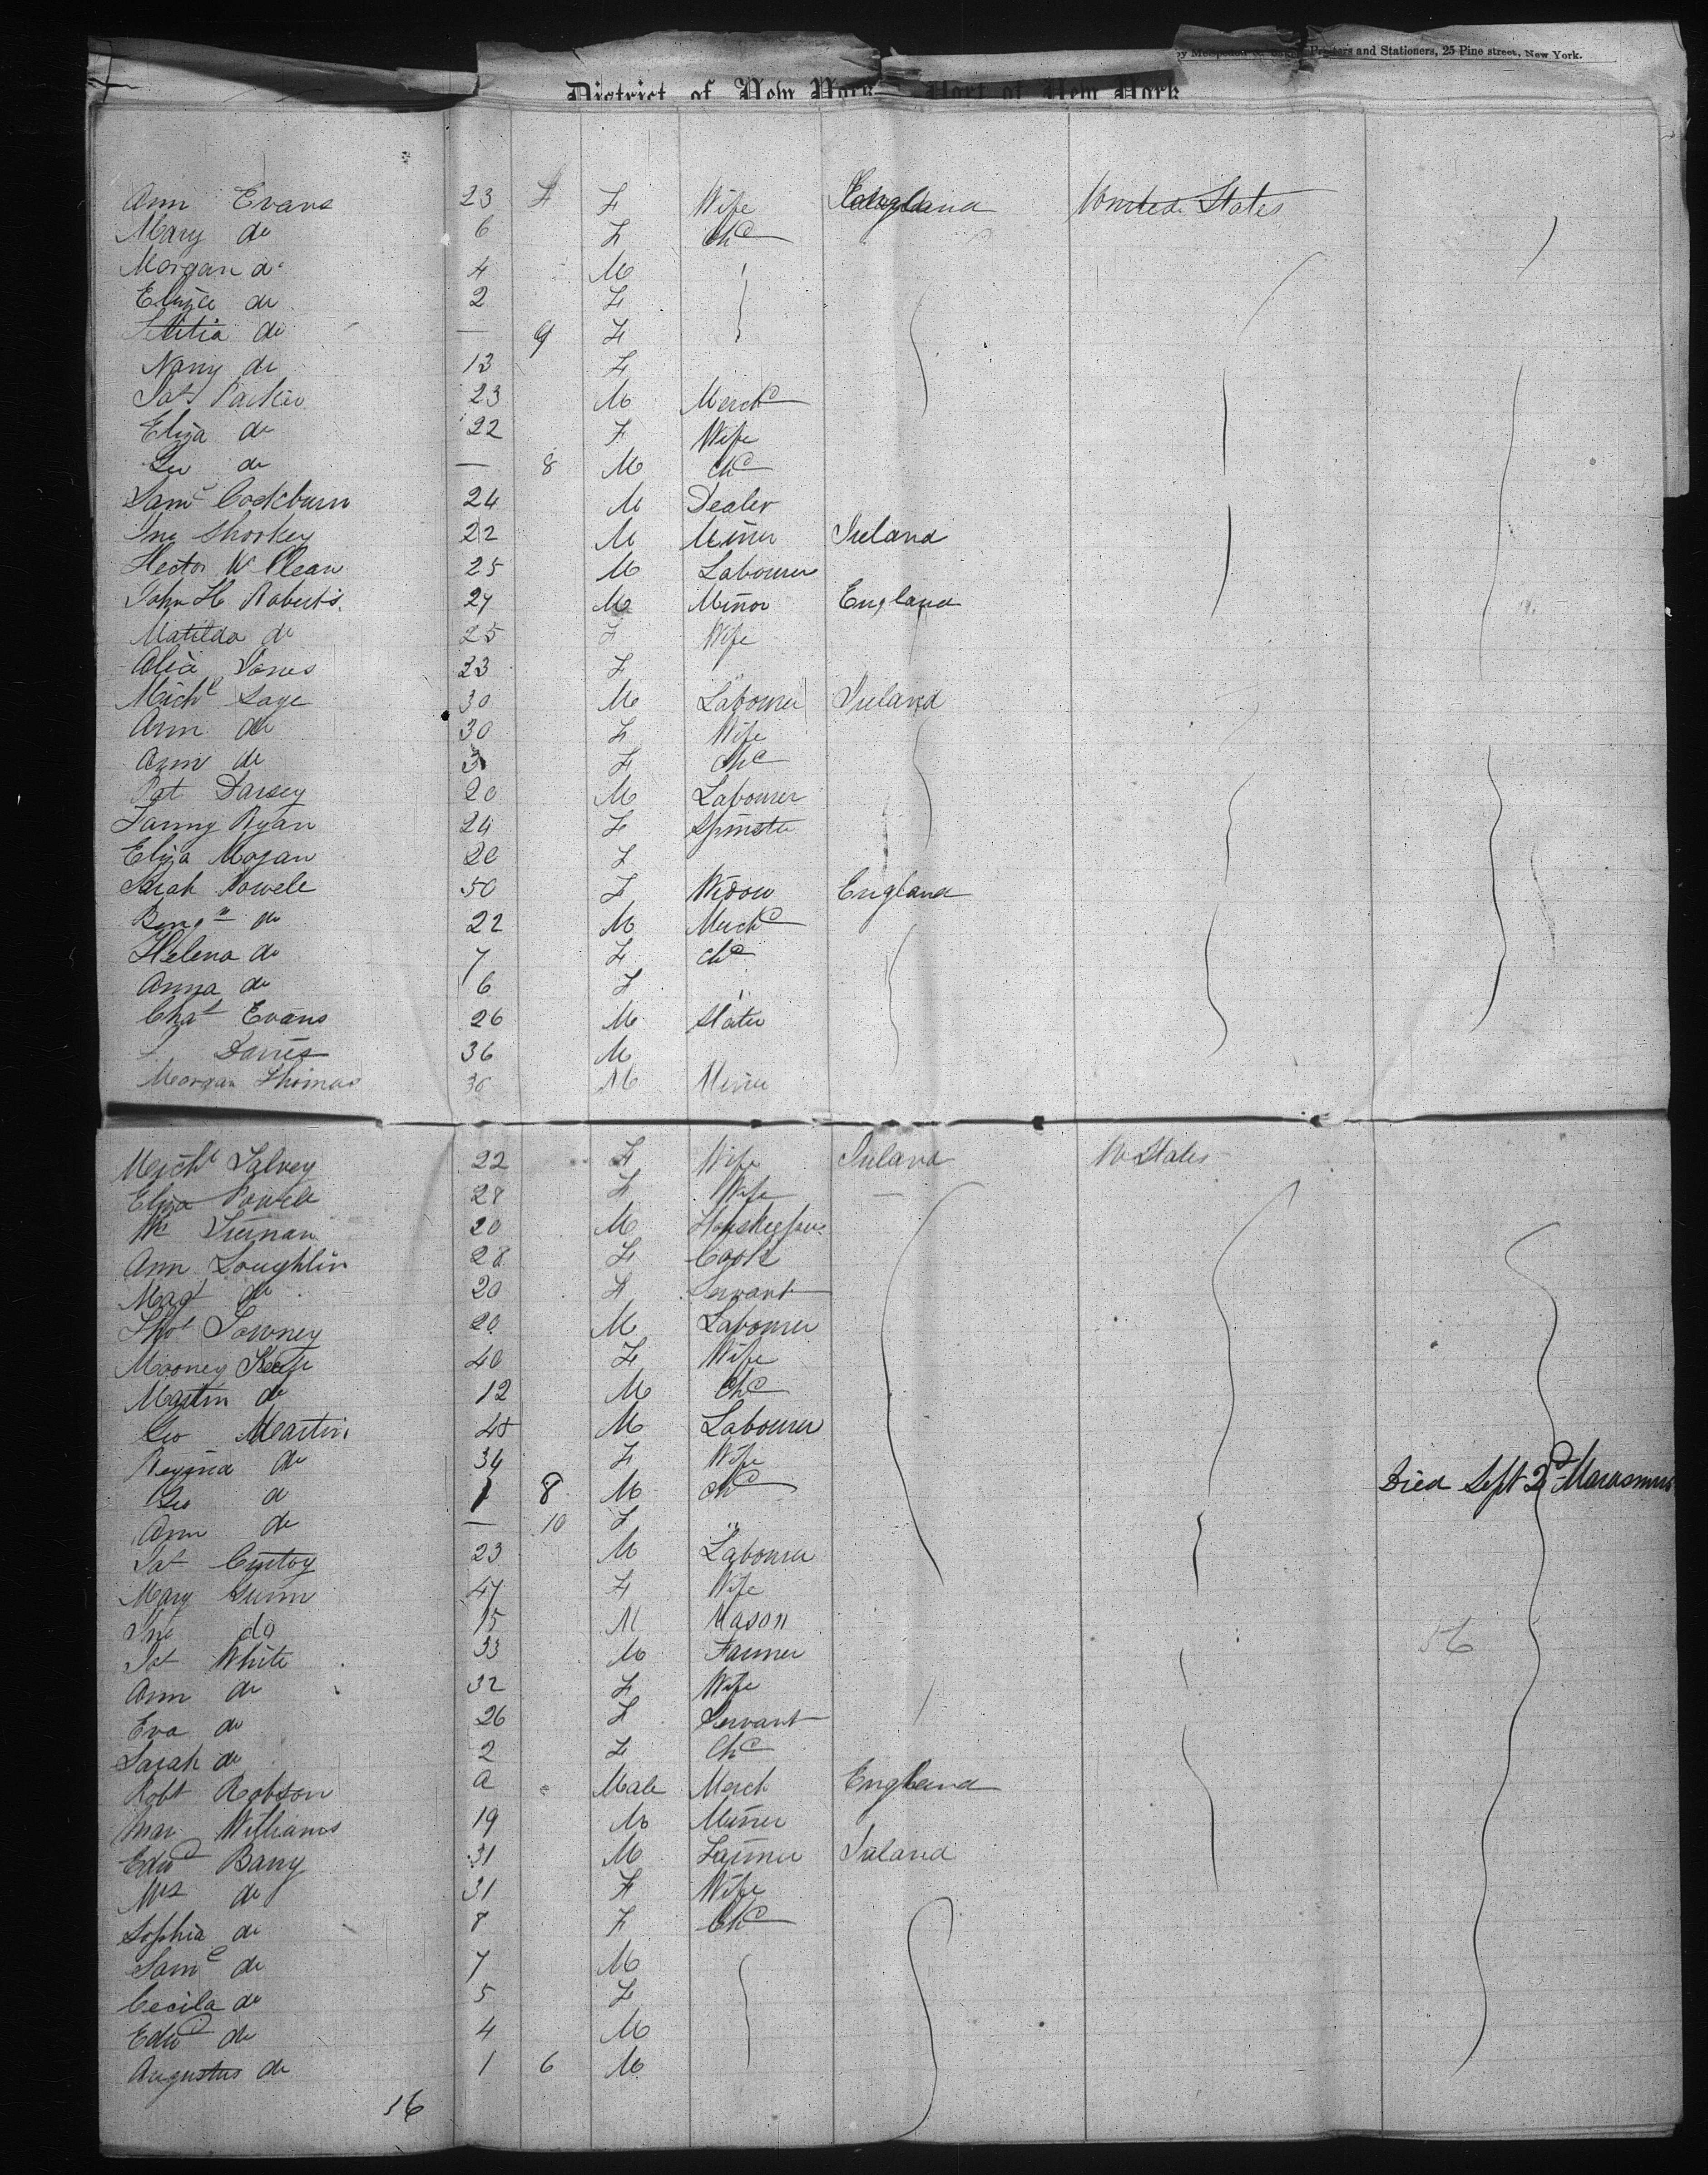 Printers and Stationers, 25 Pine street, New York.
District of New York Port of New York
Ann Evans 23 F Wife England United States
Mary do 6 F Chd
Morgan do 4 M
Eliza do 2 F
Letitia do — 9 F
Nany do 13 F
Jas Parker 23 M Merch
Eliza do 22 F Wife
Geo do — 8 M Chd
Saml Cockburn 24 M Dealer
Jno Shorkey 22 M Miner Ireland
Hector McClean 25 M Labourer
John H Roberts 27 M Minor England
Matilda do 25 F Wife
Alice Jones 23 F "
Michl Sage 30 M Labourer Ireland
Ann do 30 F Wife
Ann do 3 F Chd
Pat Darsey 20 M Labourer
Fanny Ryan 24 F Spinster
Eliza Mogan 20 F
Sarah Powell 50 F Widow England
Benjn do 22 M Merch
Helena do 7 F Chd
Anna do 6 F "
Chas Evans 26 M Slater
Davies 36 M
Morgan Thomas 36 M Miner
Michl Salvey 22 F Wife Ireland U States
Eliza Powell 28 F Wife
Wm 20 M Housekeeper
Ann Loughlin 28 F Cook
Magt do 20 F Servant
Thos Downey 20 M Labourer
Mooney Keefe 40 F Wife
Martin do 12 M Chd
Geo Martin 45 M Labourer
Regina do 34 F Wife
Geo do 1 8 M Chd Died Sept 2d Marasmus
Ann do — 10 F "
Pat 23 M Labourer
Mary Gunn 47 F Wife
Jno do 15 M Mason
Pat White 33 M Farmer 56
Ann do 32 F Wife
Eva do 26 F Servant
Sarah do 2 F Chd
Robt Robson a Male Merch England
Wm Williams 19 M Miner
Edwd Barry 31 M Farmer Ireland
Mrs do 31 F Wife
Sophia do 8 F Chd
Saml do 7 M
Cecila do 5 F
Edwd do 4 M
Augustus do 1 6 M
56